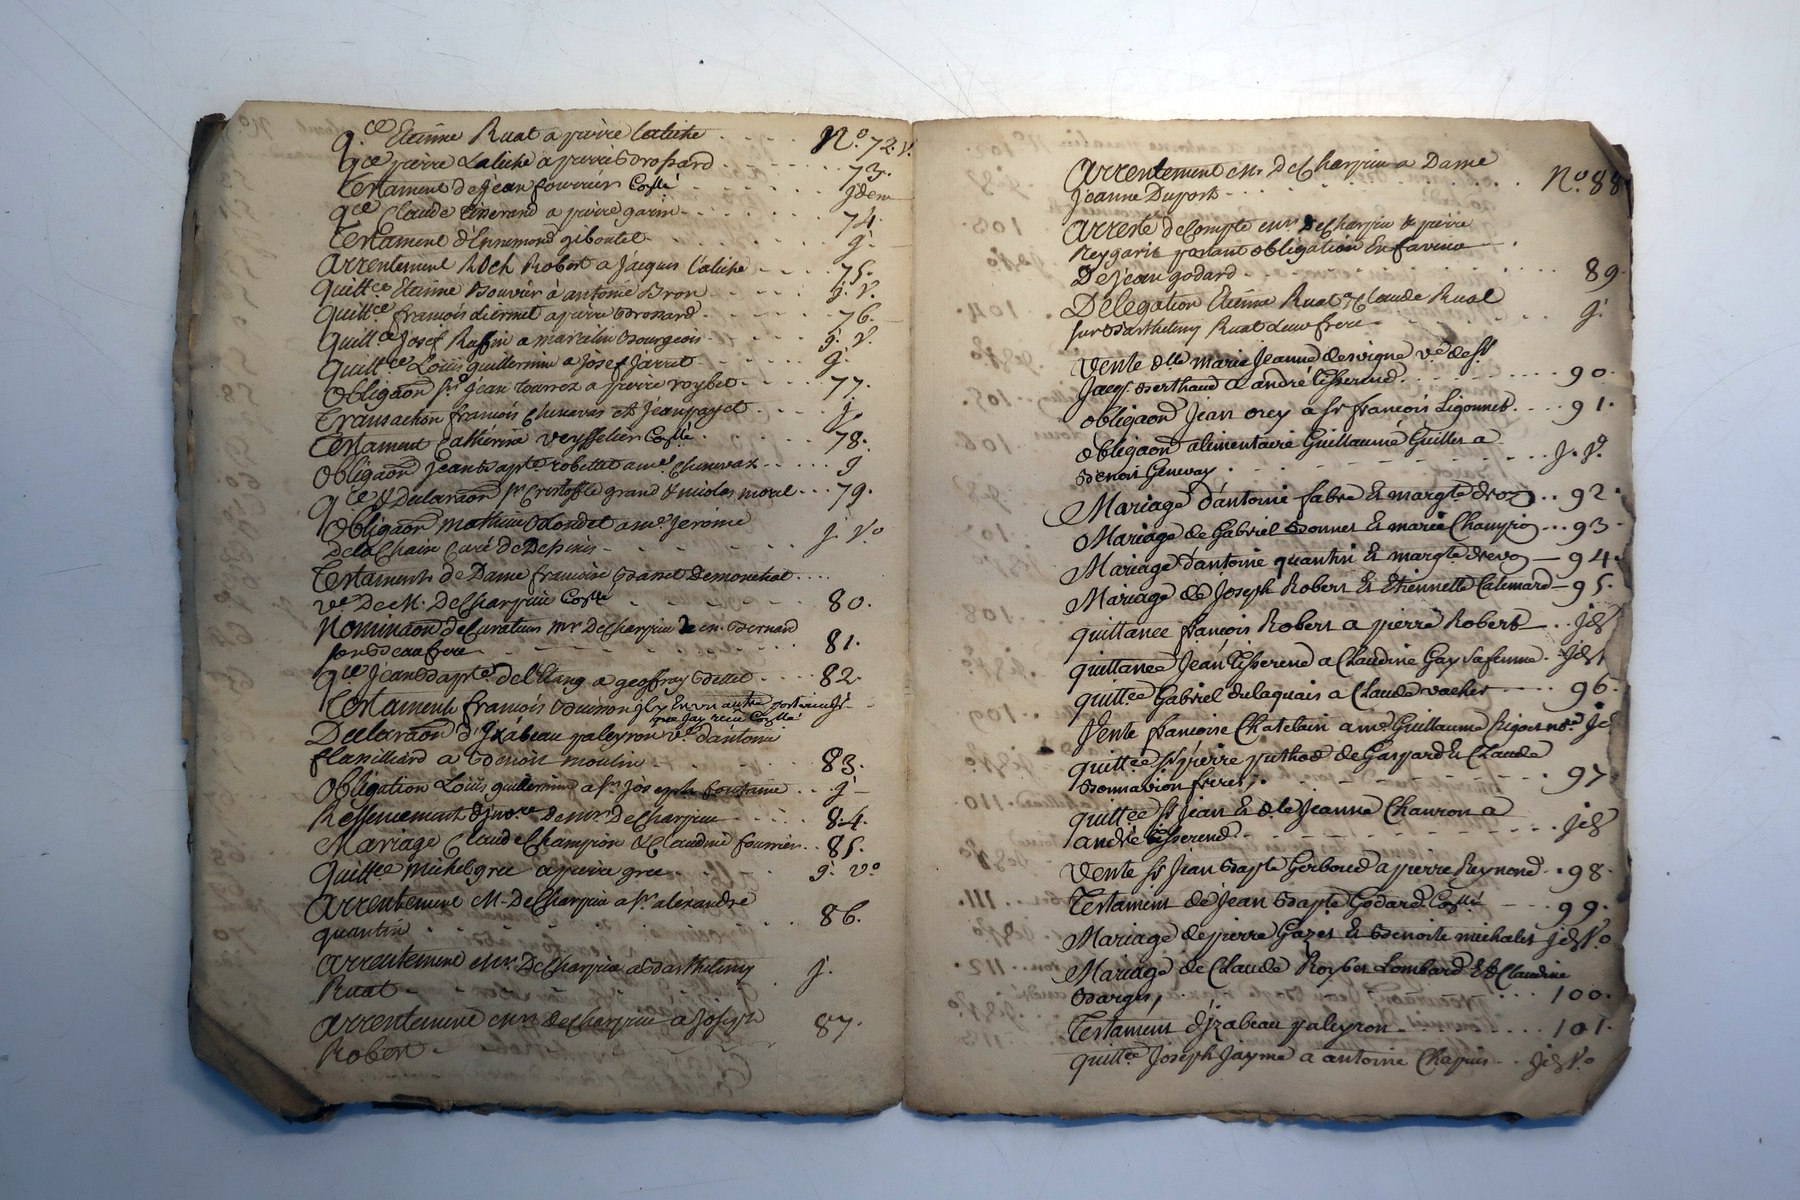 q.ce Etienne Ruat a pierre Caliche . . . . N.o 72. v.
q.ce pierre Caliche a pierre Brossard . . . . 73.
Testament de Jean fourrier Costé . . . . jdem
q.ce Claude tisserand a pierre garin . . . . 74.
Testament d'Ennemond giboulet . . . . j.
Arrentement Roch Robert a Jacques Caliche . . . . 75.
quitt.ce Etienne Bouvier à antoine Bron . . . . j. v.
quitt.ce francois a pierre Brossard . . . . 76.
quitt.ce Josef Raffin a marcelin Bourgeois . . . . j. v.
quitt.ce Loüis guillermin a Josef Jarret . . . . j.
obligaon Sr. jean tournox a pierre roybet . . . . 77.
Transaction francois Chenavas et Jean payet . . . . j.
Testament Catherine veyssellier Costé . . . . 78.
obligaon Jean bapt.e robellet a me. Chenavax . . . . j
q.ce & Declaraon Sr Cristofle grand & nicolas morel . . . 79.
obligaon mathieu Blondet a me. Jerome
de la Chaire Curé de . . . . j. v.o
Testament de Dame francoise Demonchal . . . .
v.e De M. DeCharpin Costé . . . . 80.
Nominaon de Curateur Mr DeCharpin Bernard
son beaufrere . . . . 81.
q.ce Jean Bapt.e del'Etang a geoffray . . . . 82.
Testament francois Buisson il y En un autre posterieur j.
que Jay recu Costé
Declaraon d'Jzabeau paleyron v.e d'antoine
flassilliard a Benoit moulin . . . . 83.
obligation Loüis guillermin a Sr Joseph fontaine . . j.
d'jnv.re De mr DeCharpin . . . . 84.
Mariage Claude Champion & Claudine fourrier . . 85.
quitt.ce michel gree a pierre gree . . . . j. v.o
Arrentement M. DeCharpin a Sr alexandre
quantin . . . . 86.
Arrentement Mr. DeCharpin a Barthelemy
Ruat . . . . j.
Arrentement Mr. de Charpin a Joseph
Robert . . . . 87.
Arrentement Mr. DeCharpin a Dame
Jeanne Duport . . . . N.o 88
Arreté deCompte Mr. DeCharpin & pierre
Reygarin portant obligation En faveur
De Jean godard . . . . 89.
Délegation Etienne Ruat & Claude Ruat
sur Barthelemy Ruat Leur frere . . . . j.
vente d.lle marie Jeanne desvigne v.e de Sr
Jacq. Berthaud a andré tisserend . . . . 90.
obligaon Jean orey a Sr francois Ligonnet . . . . 91.
obligaon alimentaire Guillaume Guillet a
Benoit Genevay . . . . j. v.o
Mariage d'antoine fabre & marg.te . . 92.
Mariage de Gabriel Bonnet & marie Champion . . . 93.
Mariage d'antoine quantin & marg.te drevo — 94.
Mariage de Joseph Robert & Etiennette Calemard — 95.
quittance francois Robert a pierre Robert . . . jd
quittance Jean tisserend a Claudine Gay sa femme . jd
quitt.ce Gabriel dulaquais a Claude vacher . . . . 96.
Vente francoise Chatelain a me. Guillaume Rigot no.re jd
quitt.ce Sr pierre puthod de Gaspard & Claude
Bonnavion freres, . . . . 97
quitt.ce Sr Jean & d.lle Jeanne Chauron a
andré tisserend . . . . jd
vente Sr Jean Bapt.e Gerboud a pierre Reymond . . 98.
Testament de Jean Bapt.e Godard Costé — 99.
Mariage de pierre Gazet & Benoite michalet jd v.o
Mariage de Claude Roybet Lombard & Claudine
Barges, . . . . 100.
Testament d'jzabeau paleyron . . . . 101.
quitt.ce Joseph Jayme a antoine Chapuis . . jd v.o